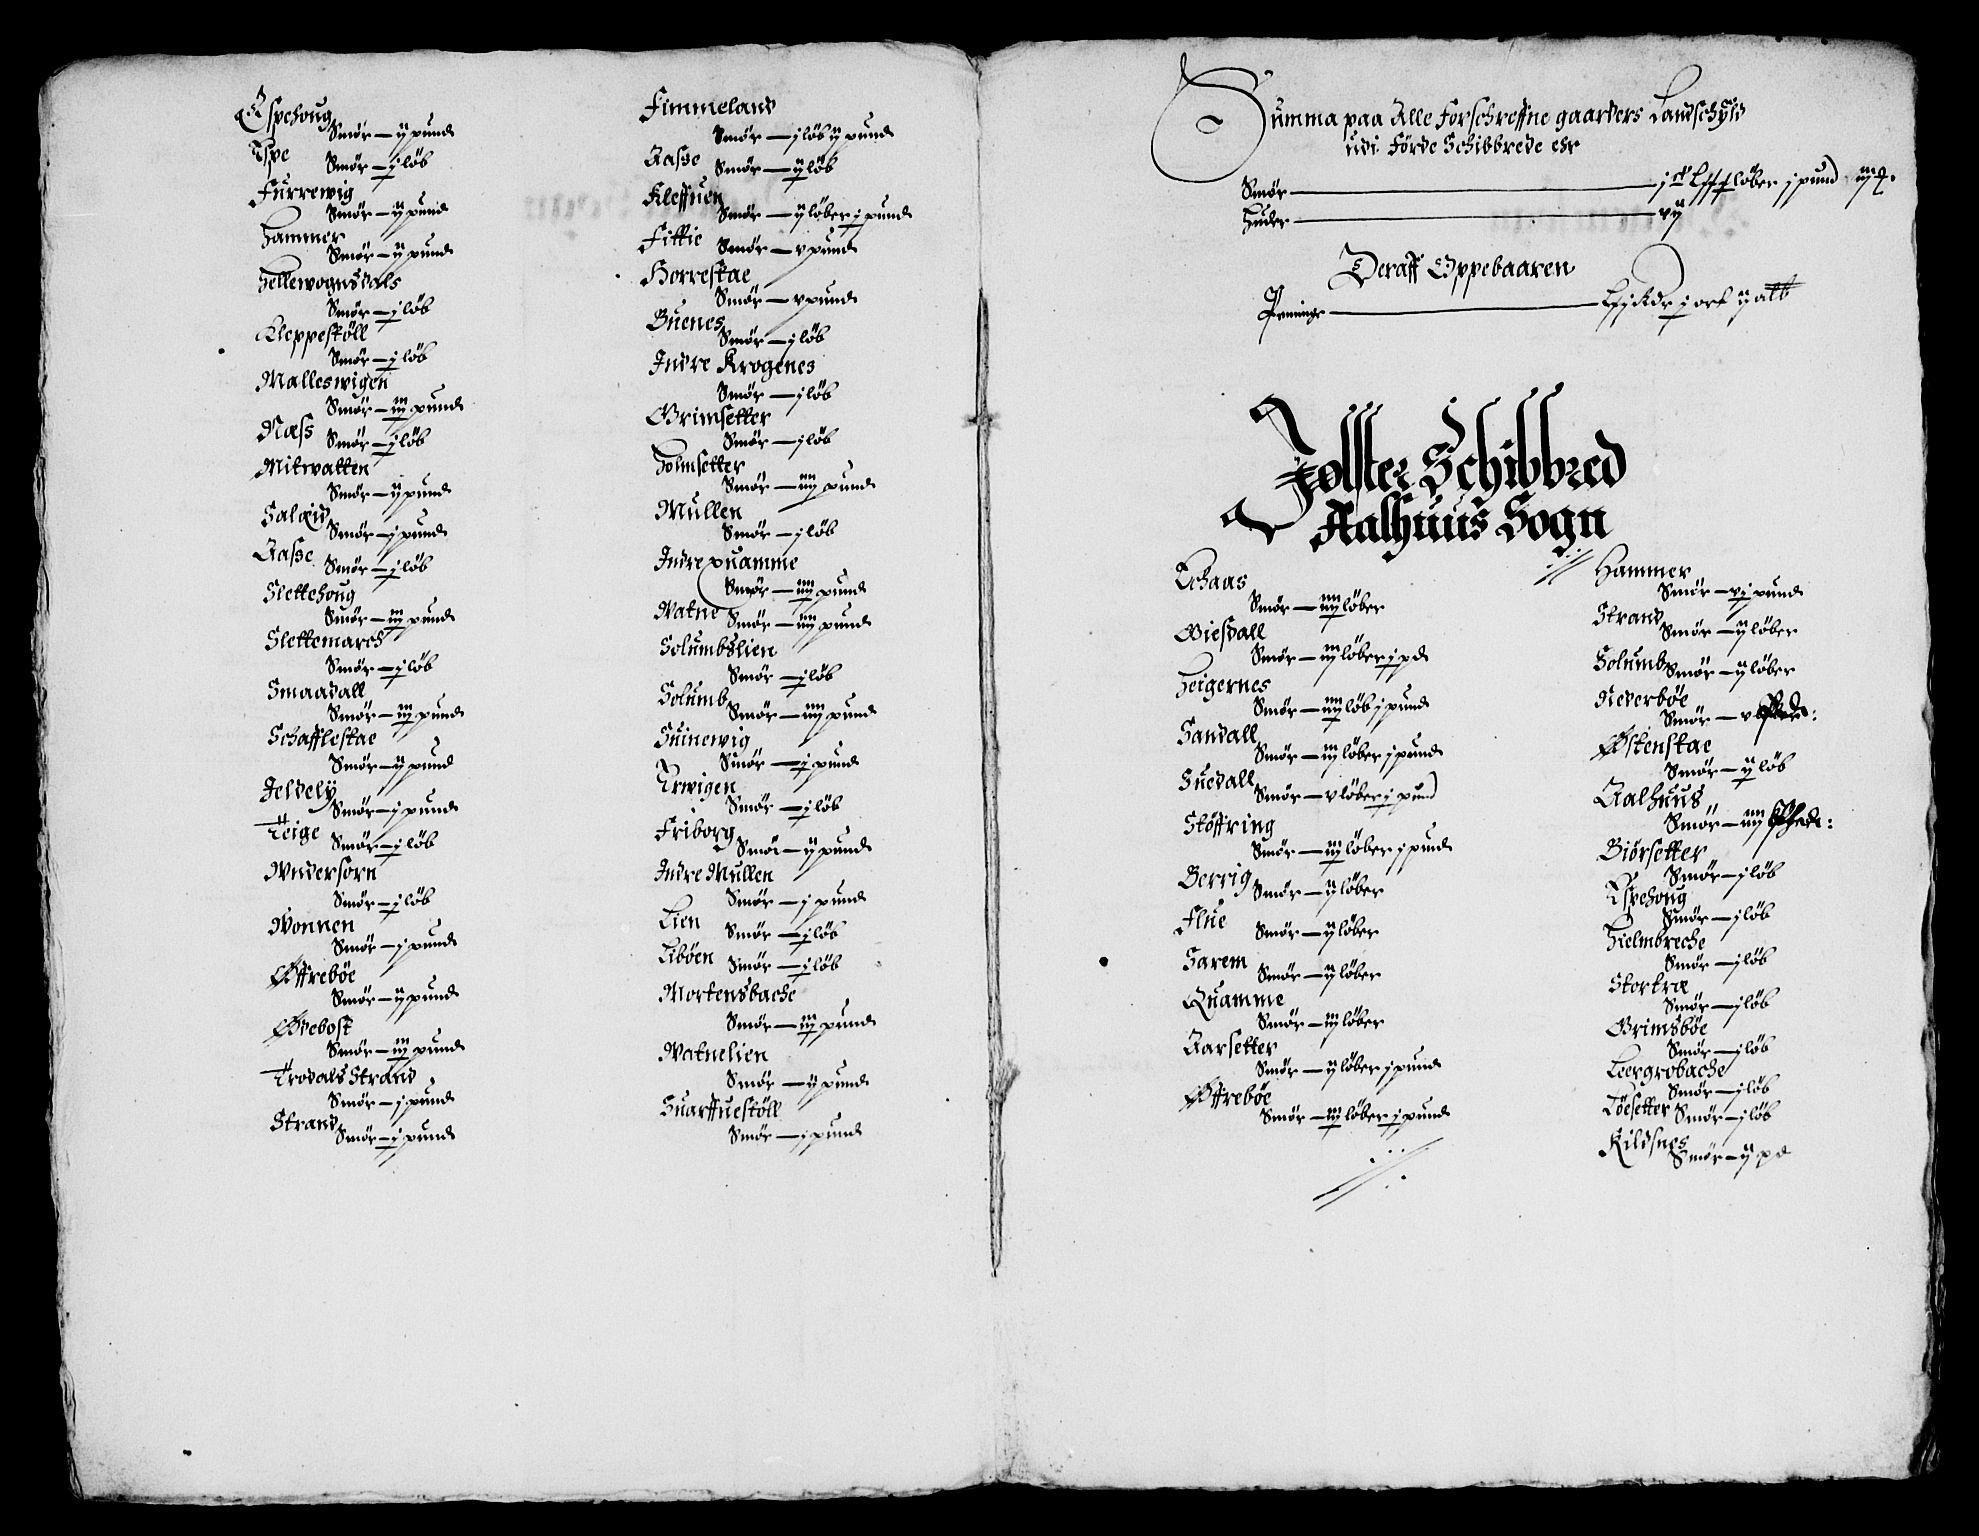 Espehoug
Smör — ij pund
Espe
Smör — j löb
Furrewig
Smör — ij pund
Hammer
Smör — ij pund
Hellewognsdals
Smör — j löb
Kleppestöll
Smör — j löb
Malleswigen
Smör — iij pund
Næss
Smör — j löb
Mitvatten
Smör — ij pund
Salæid
Smör — j pund
Aasse
Smör — j löb
Slettehoug
Smör — iij pund
Slettemarch
Smör — j löb
Smaadall
Smör — iij pund
Schafflestae
Smör — ij pund
Jeldely
Smör — j pund
Teige
Smör — j löb
Undersorn
Smör — j löb
Vonnen
Smör — j pund
Øffrebøe
Smör — ij pund
Ødebost
Smör — iij pund
Trodals Strand
Smör — j pund
Strand
Smör — j pund
Fimmeland
Smör — j löb ij pund
Aasse
Smör — ij löb
Kleffuen
Smör — ij löber j pund
Fittie
Smör — v pund
Horrestae
Smör — v pund
Buenes
Smör — j löb
Indre Krogenes
Smör — j löb
Grimsetter
Smör — j löb
Holmsetter
Smör — iiij pund
Mullen
Smör — j löb
Indre Quamme
Smör — iiij pund
Vatne
Smör — iiij pund
Solumbslien
Smör — j löb
Solumb
Smör — iiij pund
Suinewig
Smör — j pund
Erwigen
Smör — j löb
Friborg
Smör — ij pund
Indre Mullen
Smör — j pund
Lien
Smör — j löb
Liböen
Smör — j löb
Mortensbache
Smör — iij pund
Vatnelien
Smör — ij pund
Suarffuestöll
Smör — j pund
Summa paa Alle Forschreffne gaarders Landschyld
udi Förde Schibbrede ehr
Smör — löber j pund
Huder — vij
Deraff Oppebaaren
Penninge — j ort ij alb
Jölster Schibbred
Aalhuus Sogn
Echaas
Smör — iiij löber
Giesdall
Smör — iij löber j pd
Heigernes
Smör — iiij löb j pund
Sandall
Smör — iij löber j pund
Suedall
Smör — v löber j pund
Stöffring
Smör — iij löber j pund
Berrig
Smör — ij löber
Flue
Smör — ij löber
Sarem
Smör — ij löber
Quamme
Smör — iij löber
Aarsetter
Smör — ij löber j pund
Øffrebøe
Smör — iij löber j pund
Hammer
Smör — vj pund
Strand
Smör — ij löber
Solumb
Smör — ij löber
Nederböe
Smör — v
Østenstae
Smör — ij löb
Aalhuus
Smör — iiij
Biörsetter
Smör — j löb
Espehoug
Smör — j löb
Hielmbreche
Smör — j löb
Stortræ
Smör — j löb
Grimsböe
Smör — j löb
Leergrobache
Smör — j löb
Löesetter
Smör — j löb
Kildsnes
Smör — ij pd